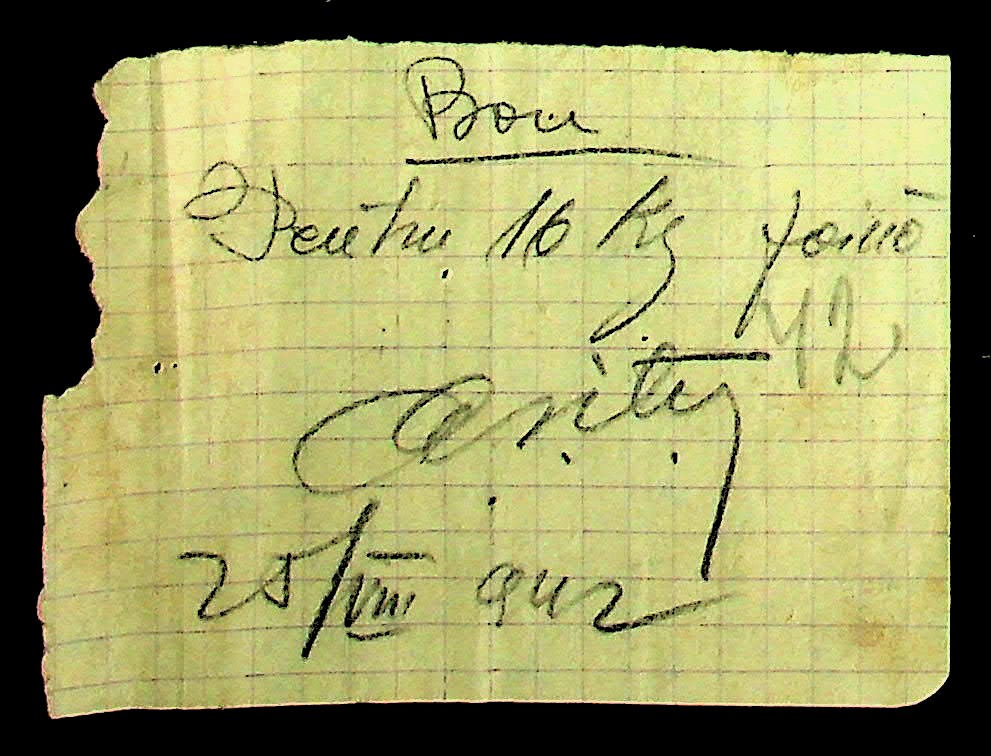 Bon
Pentru 16 Kg făină
42
25/VIII 942